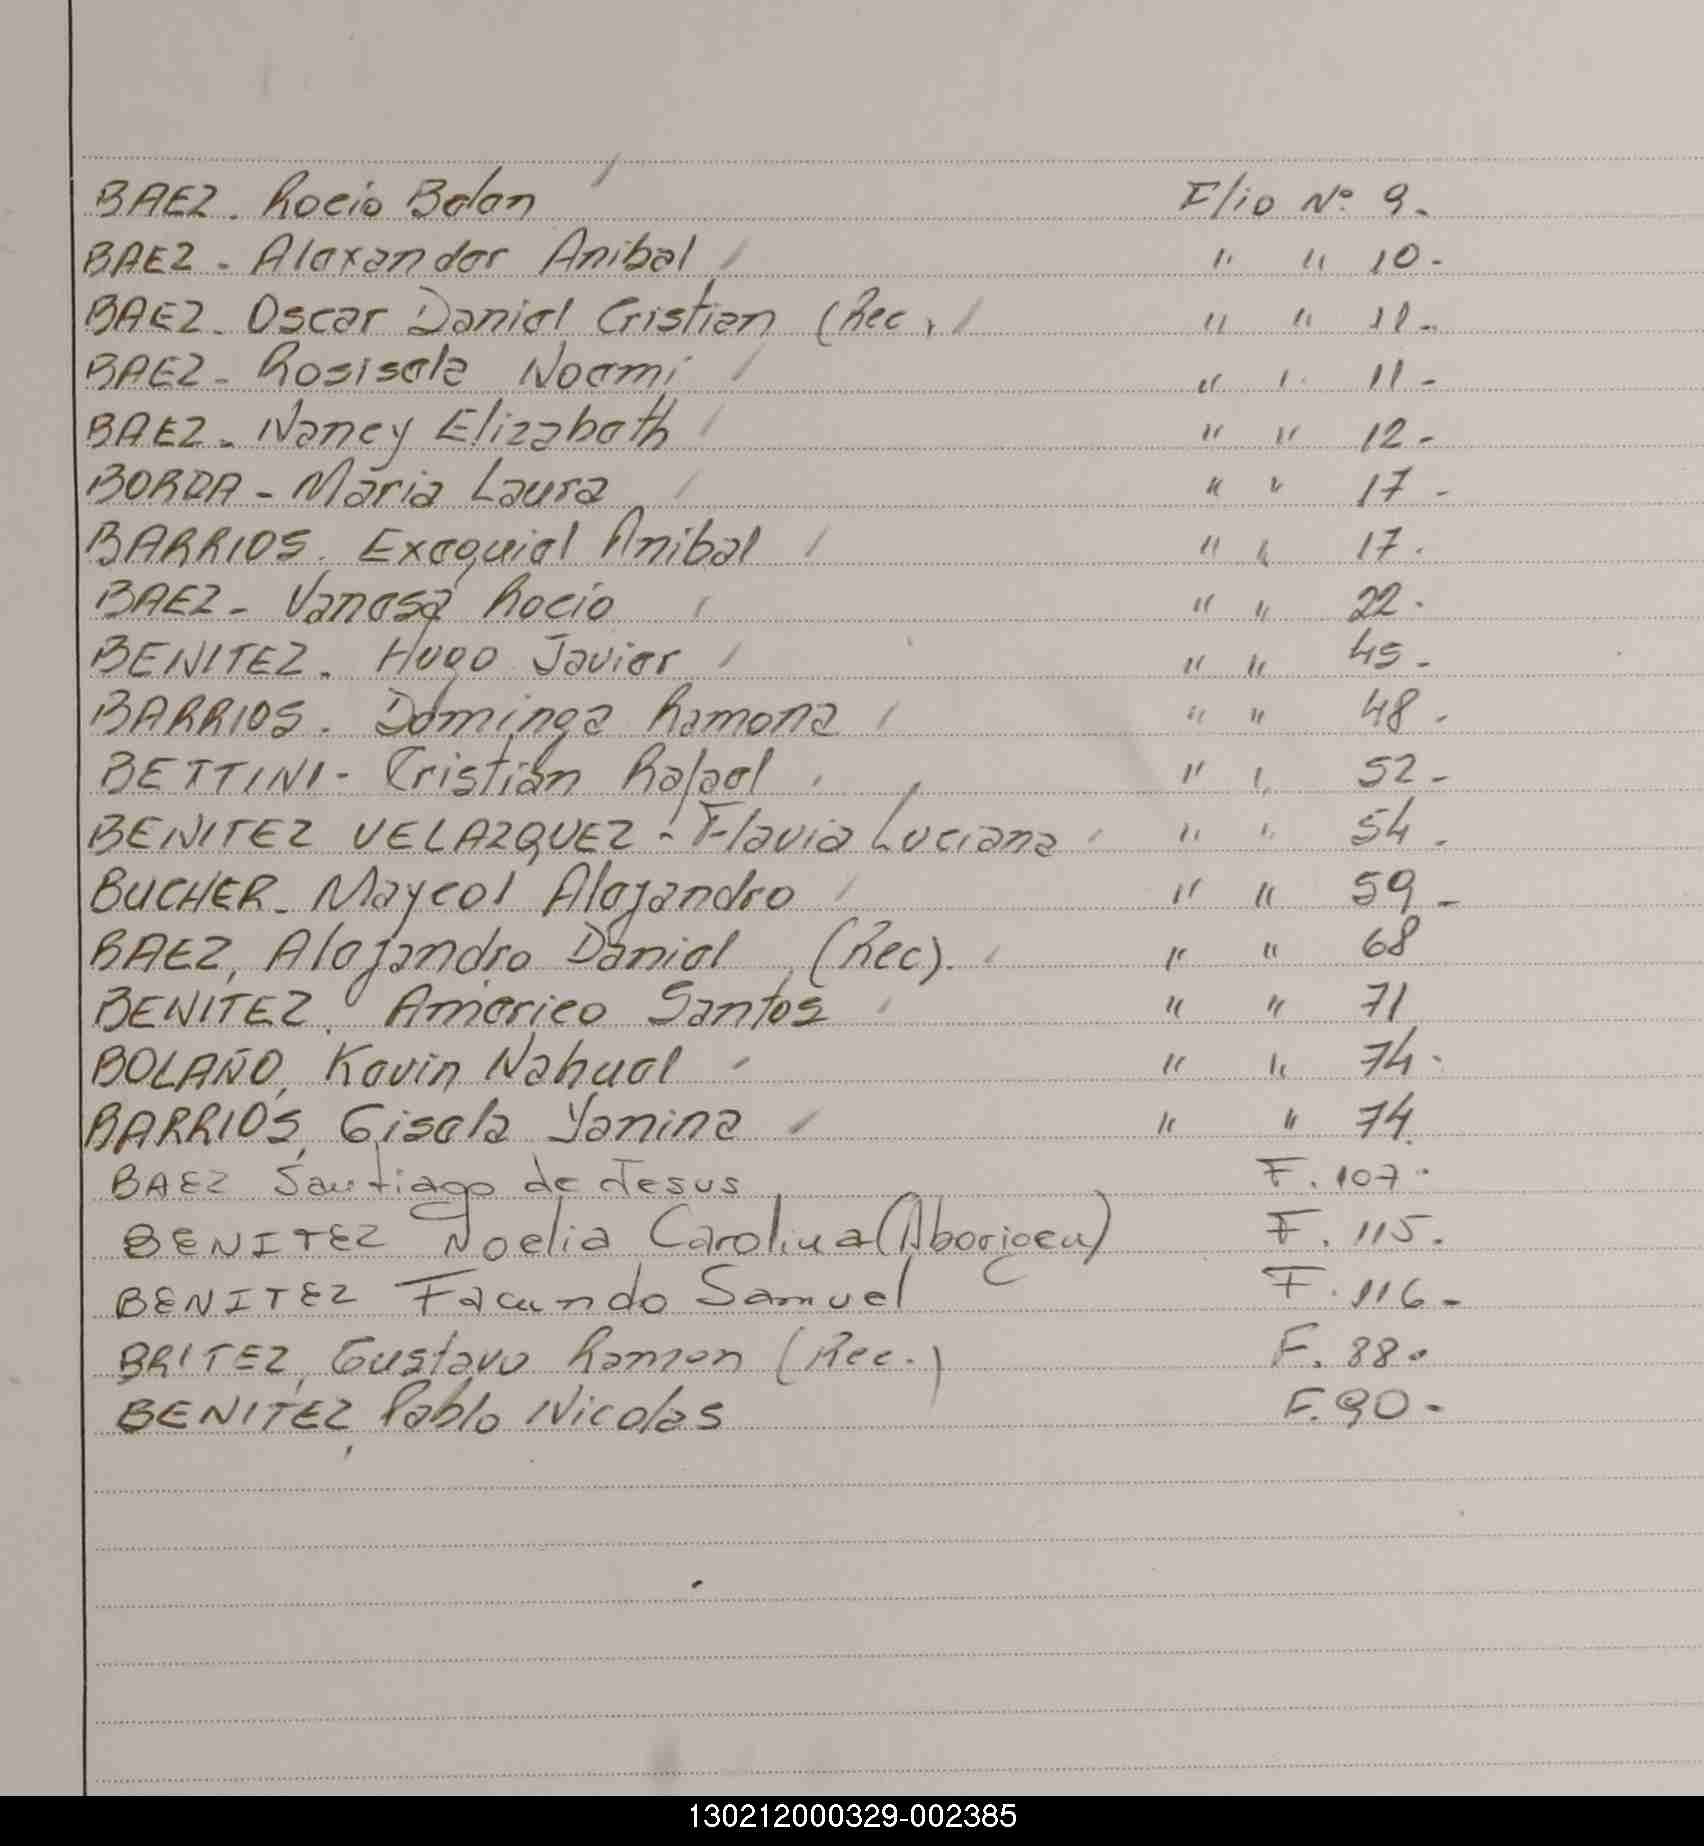 BAEZ. Rocio Belen F/io Nº 9.
BAEZ - Alexander Anibal " " 10-
BAEZ - Oscar Daniel Cristian (Rec. " " 11-
BAEZ - Rosisela Noemi " " 11-
BAEZ - Nancy Elizabeth " " 12-
BORDA - Maria Laura " " 17-
BARRIOS. Exequiel Anibal " " 17.
BAEZ - Vanesa Rocio " " 22.
BENITEZ. Hugo Javier " " 45-
BARRIOS. Dominga Ramona " " 48-
BETTINI - Cristian Rafael " " 52-
BENITEZ VELAZQUEZ - Flavia Luciana " " 54-
BUCHER - Maycol Alejandro " " 59-
BAEZ, Alejandro Daniel (Rec). " " 68
BENITEZ, Americo Santos " " 71
BOLAÑO, Kevin Nahuel " " 74-
BARRIOS, Gisela Yanina " " 74.
BAEZ Santiago de Jesus F. 107.
BENITEZ Noelia Carolina (Aborigen) F. 115.
BENITEZ Facundo Samuel F. 116-
BRITEZ, Gustavo Ramon (Rec.) F. 88.
BENITEZ, Pablo Nicolas F. 90-
130212000329-002385